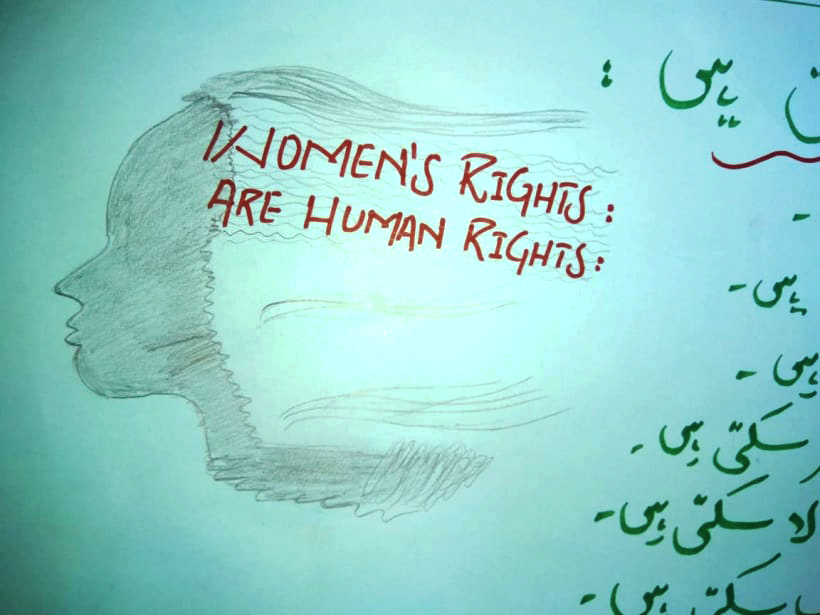 ہیں :
WOMEN'S RIGHTS :
ARE HUMAN RIGHTS :
ہیں ۔
ہیں ۔
سکتی ہیں ۔
لا سکتی ہیں ۔
سکتی ہیں ۔